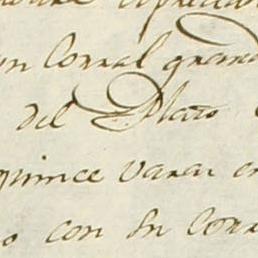 un Corral grand
del Plato
quince varas en
o con su Corr